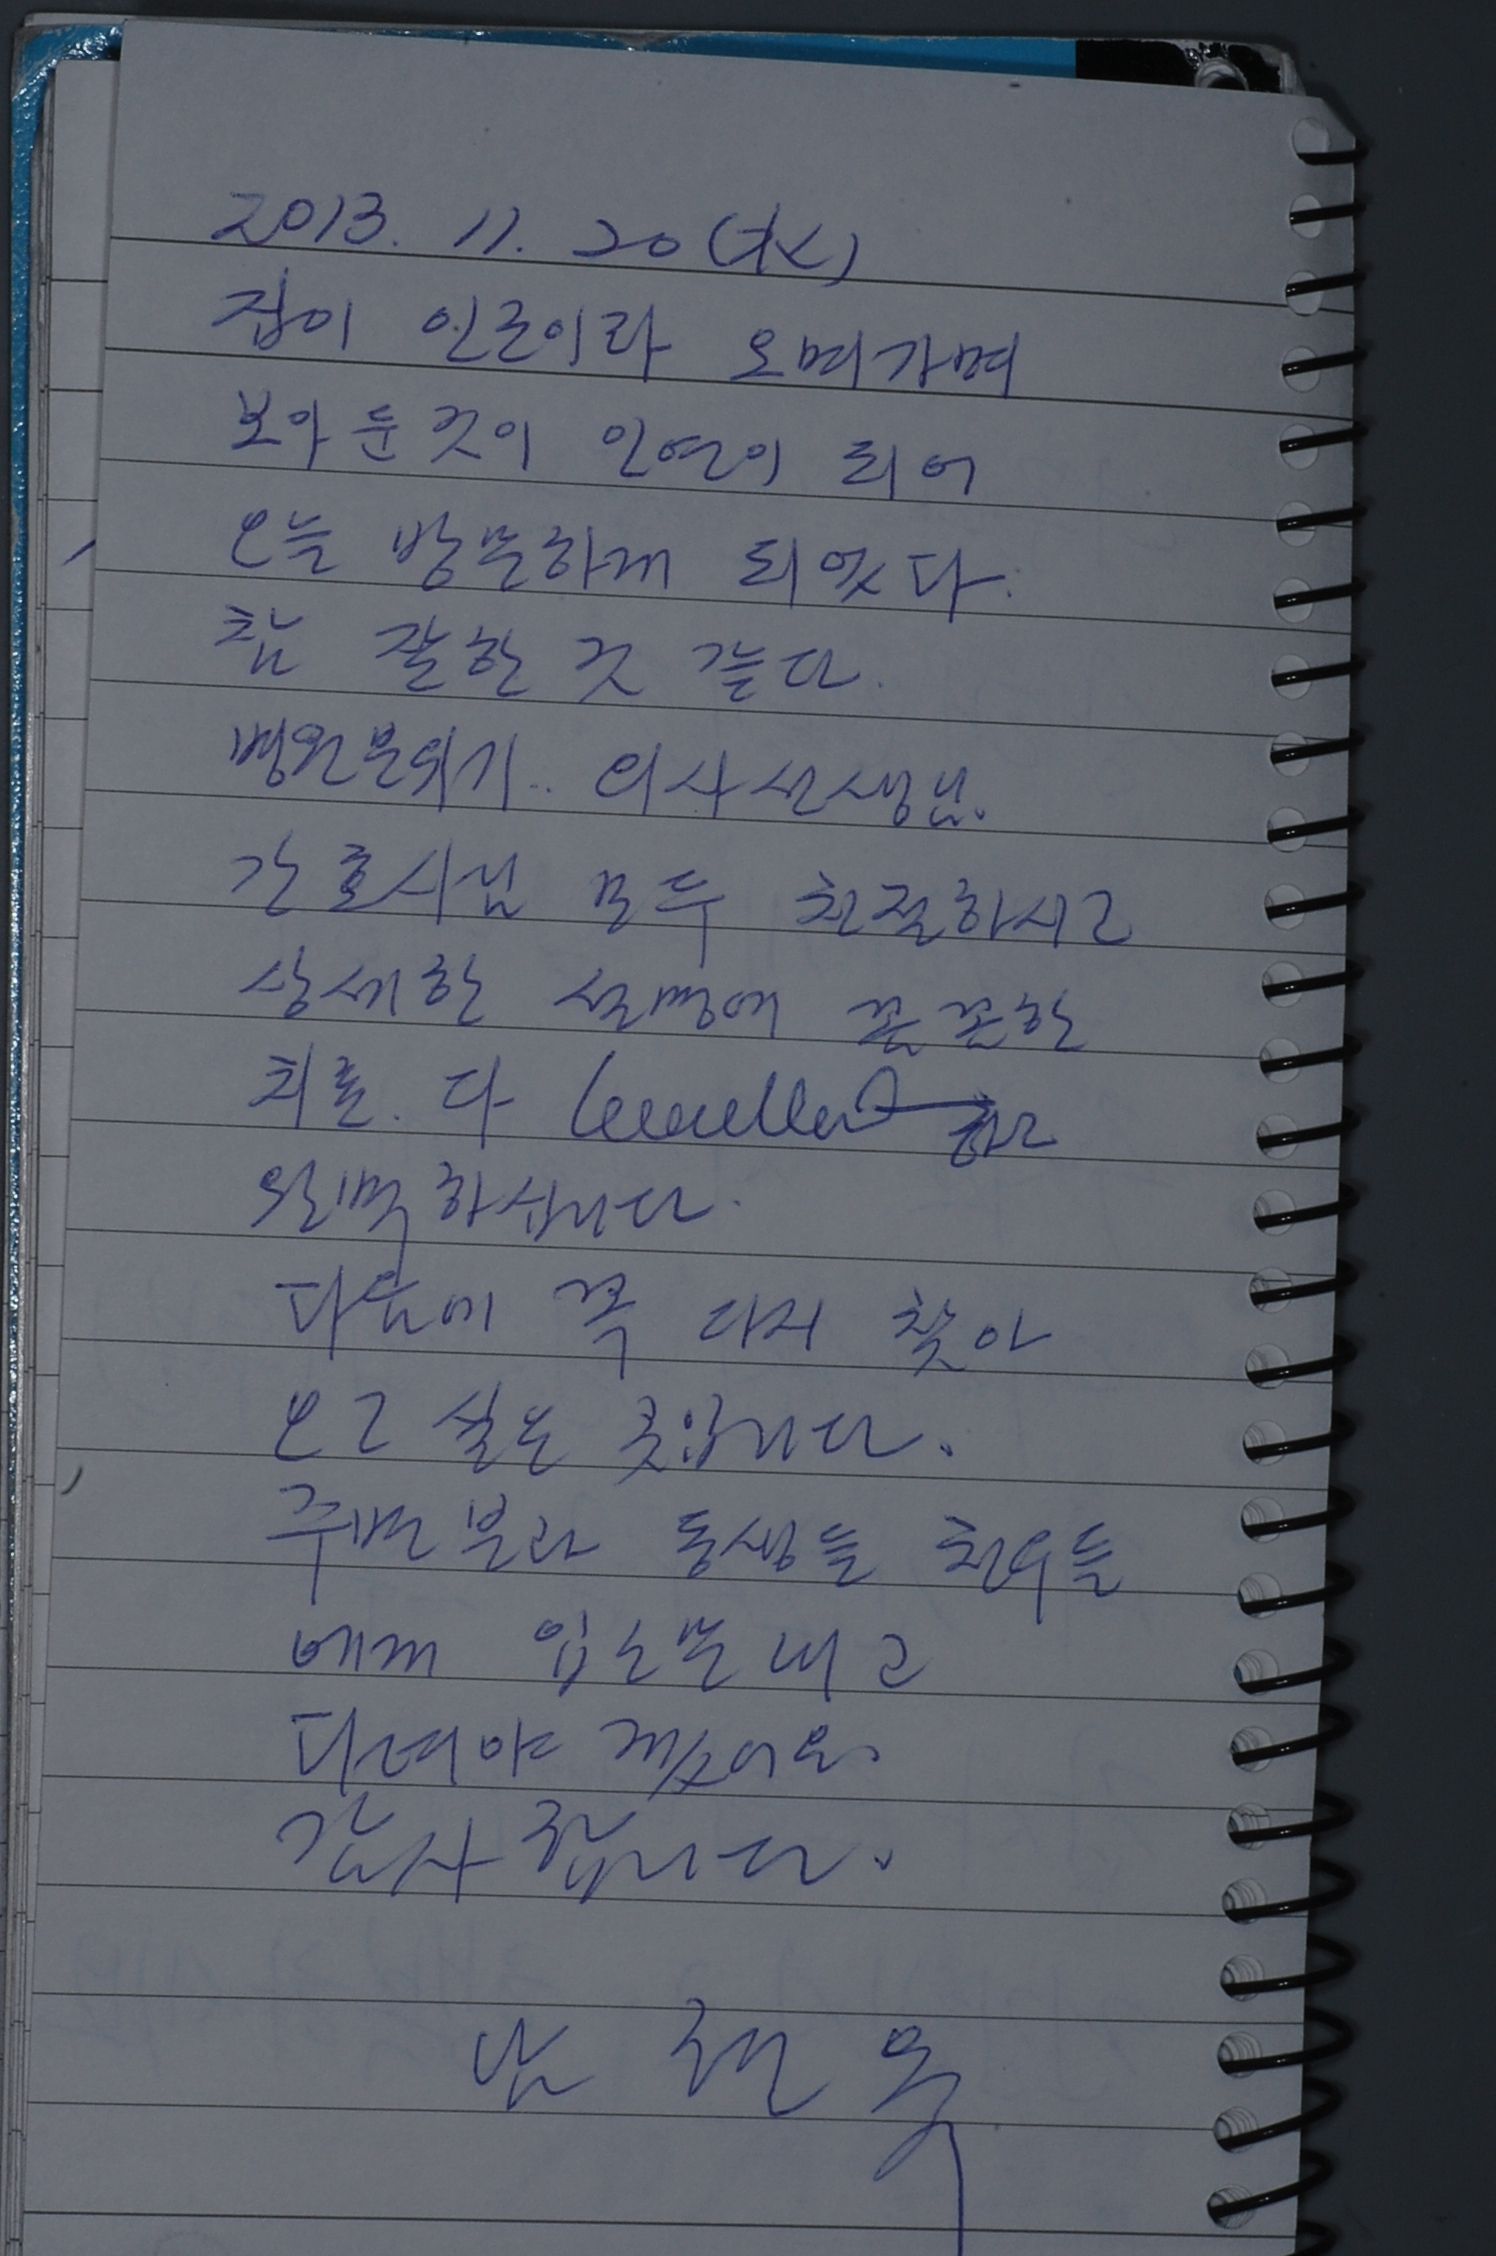 2013. 11. 20 (水)
집이 인근이라 오며가며
보아 둔것이 인연이 되어
오늘 방문하게 되었다.
참 잘한 것 같다.
병원분위기.. 의사선생님.
간호사님 모두 친절하시고
상세한 설명에 꼼꼼한
치료. 다
완벽하십니다.
다음에 꼭 다시 찾아
오고 싶은 곳입니다.
주변분과 동생들 친우들
에게 입소문내고
다녀야 겠어요.
감사합니다.
남